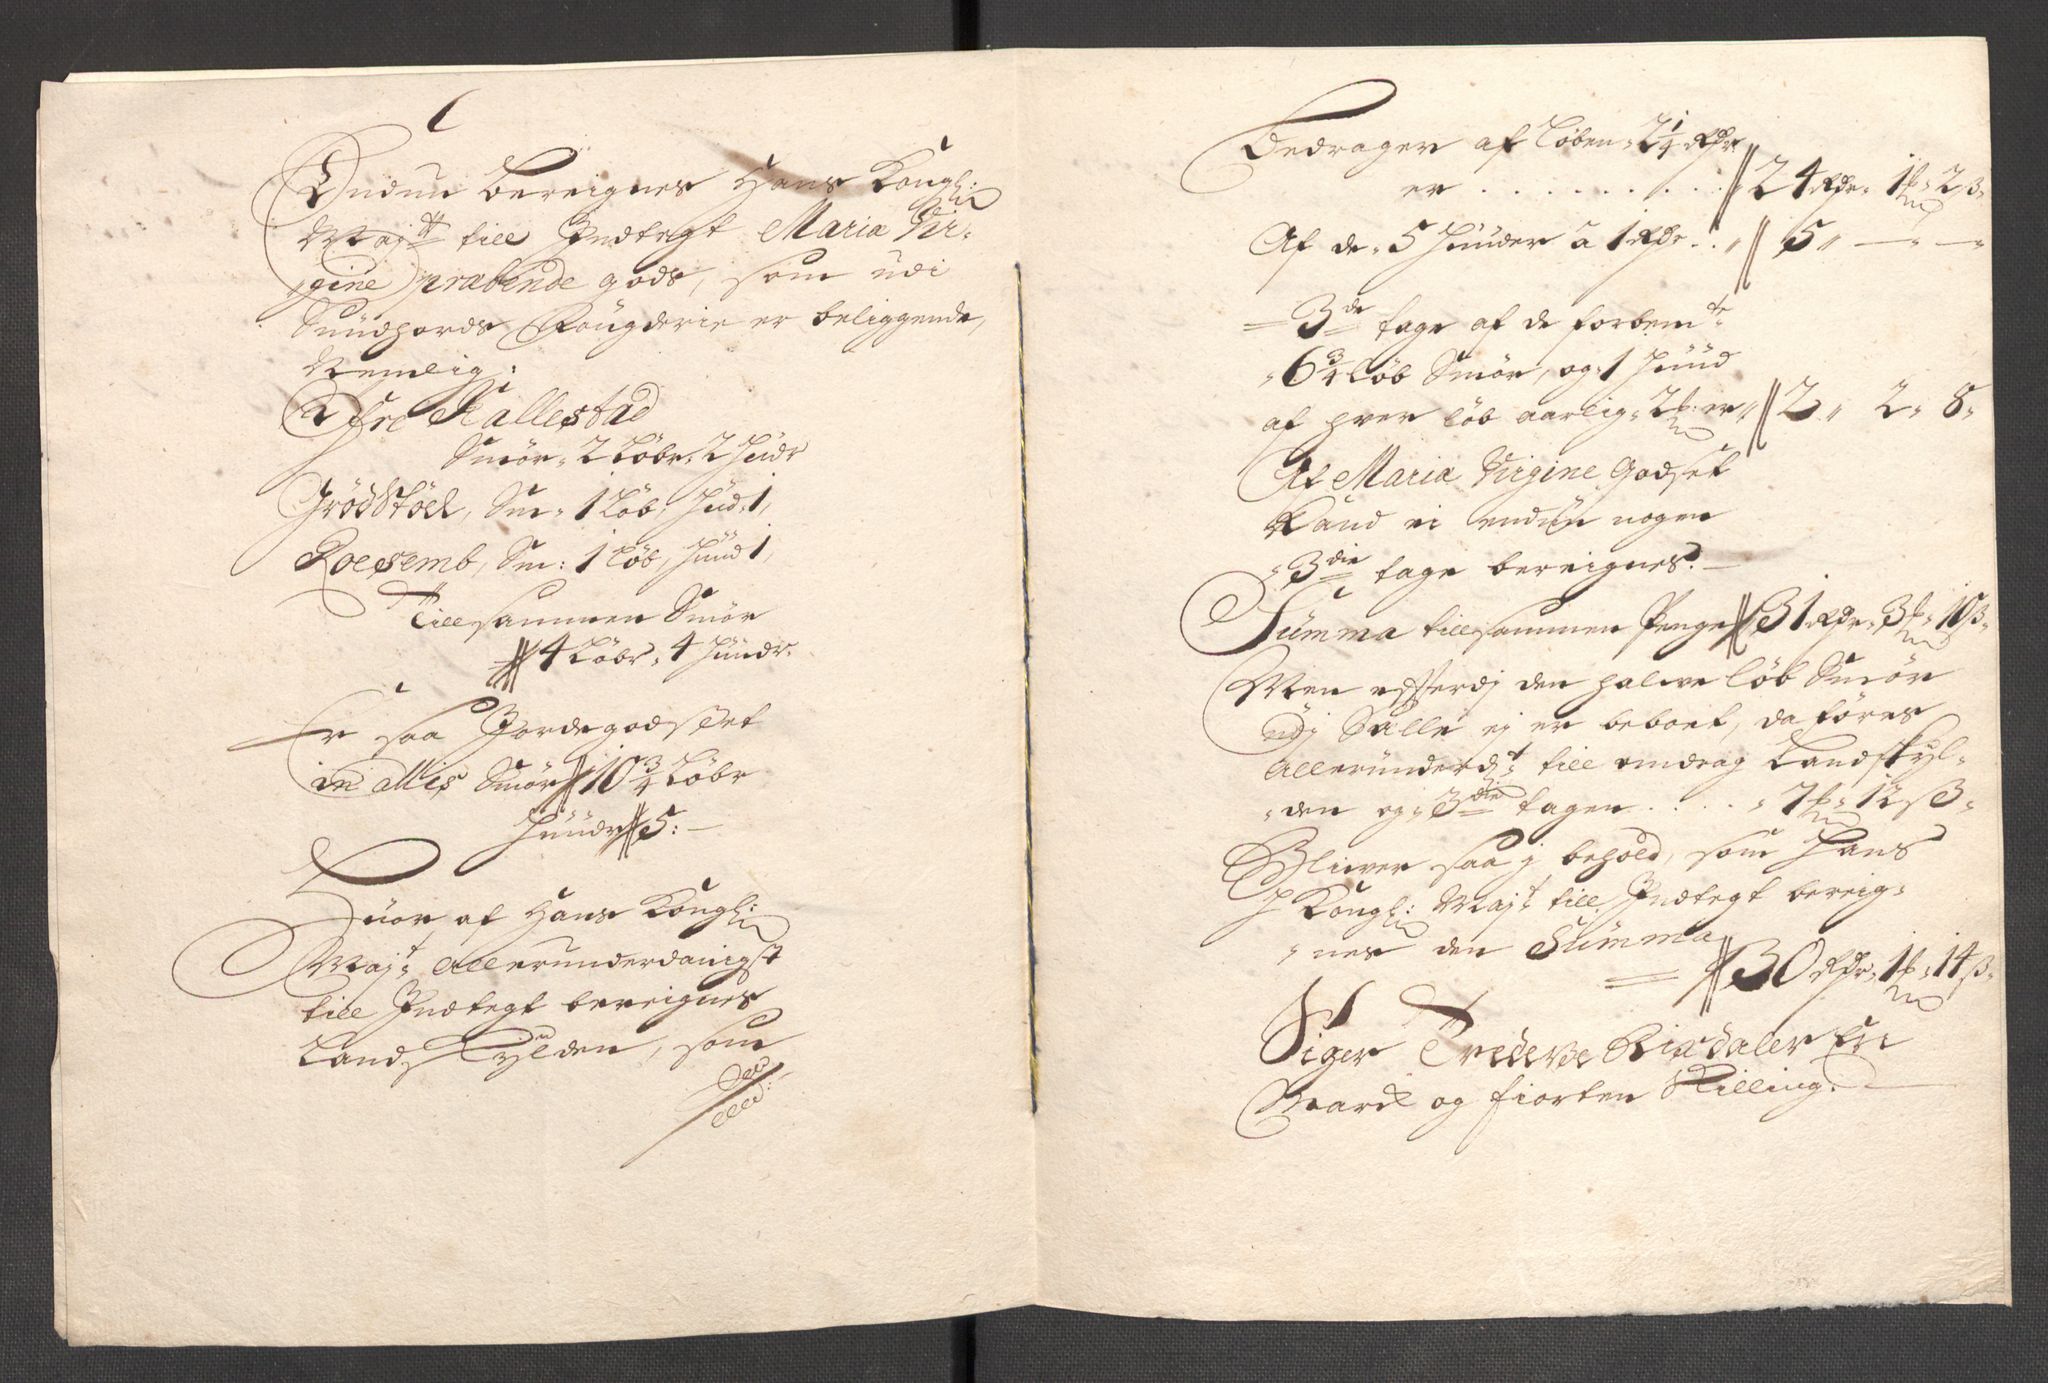 Endnu bereignes Hans Kongl:
Maj:tt till Indtegt Maria Vir-
gine præbende gods, som udi
Sundhords Fougderie er beliggende,
Nemlig:
Øfre Kallestad
Smör 2 Löber 2 Huder
Grödstöel, Sm: 1 Löb, Hud: 1,
Roesemb, Sm: 1 Löb, Huud 1,
Tillsammen Smör
4 Löbr, 4 Huudr.
Er saa Jordegodset
in allis Smör 10 3/4 Löbr
Huudr 5:
Huor af Hans Kongl:
Maj:t Allerunderdanigst
till Indtegt bereignes
Landskylden, som
Bedrager af Löben 2 1/4 Rdr
er . . . . . . . . . . 24 Rdr 1 m 2 ß
Af de 5 Huuder à 1 Rdr . . 5 — —
3de tage af de forbem:te
6 3/4 Löb Smör, og 1 Huud
af hver Löb aarlig 2 m er 2 2 8
Af Maria Virgine Godset
Kand ei endun nogen
3die tage bereignes.
Summa tillsammen Penge 31 Rdr 3 m 10 ß
Men effterdj den halwe Löb Smör
udj ej er beboet, da föres
Allerunderd:t till omdrag Landskyl-
den og 3die tagen . . . . 7 m 12 ß
Bliwer saa j behold, som Hans
Kongl: Maj:t till Indtegt bereig-
nes den Summa
30 Rdr 1 m 14 ß
Siger Tredeve Rixdaler En
Marck og fiorten Skilling.